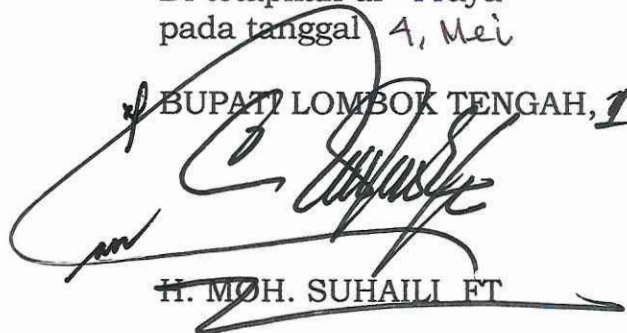 pada tanggal 4, Mei
BUPATI LOMBOK TENGAH,
H. MOH. SUHAILI FT